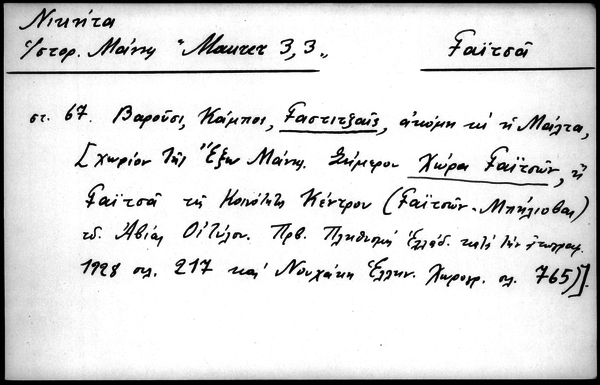 Νικήτα
Ἱστορ. Μάνης "Μαυτετ 3,3„ Γαϊτσᾶ
στ. 67. Βαροῦσι, Κάμποι, Γαστιτζαῖς, ἀκόμη κι ἡ Μάλτα,
[χωρίον τῆς Ἔξω Μάνης. Σήμερον Χώρα Γαϊτσῶν, ἤ
Γαϊτσᾶ τῆς Κοινότητος Κέντρου (Γαϊτσῶν-Μπήλιοβας)
τ. δ. Ἀβίας Οἰτύλου. Πρβ. Πληθυσμὸς Ἑλλάδ. κατὰ τὴν ἀπογραφ.
1928 σελ. 217 καὶ Νουχάκη Ἑλλην. Χωρογρ. σελ. 765)].